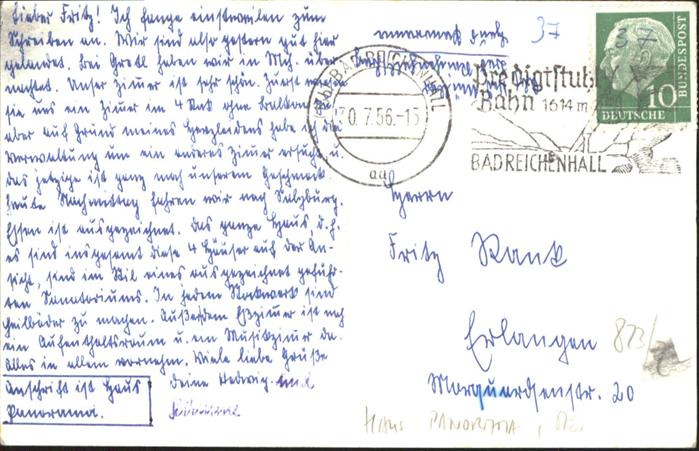 Lieber Fritz! Ich fange einstweilen zum
Schreiben an. Wir sind also gestern gut hier
gelandet. Bei Gretl haben wir in Mü. über
nachtet. Unser Zimer ist sehr schön. Zuerst
sie uns ein Zimer im 4 Stock ohne Balkon
aber auf Grund meines Herzleidens habe ich die
Verwaltung um ein anderes Zimer ersucht u.
das jetzige ist ganz nach unserem Geschmack
Heute Nachmittag fahren wir nach Salzburg.
Essen ist ausgezeichnet. Das ganze Haus, d.h.
es sind insgesamt diese 4 Häuser auf der An-
sicht, sind im Stil eines ausgezeichnet geführ-
ten Sanatoriums. In jedem Stockwerk sind
Heilbäder zu machen. Außerdem Eßzimer ist noch
ein Aufenthaltsraum u. ein Musikzimer da.
Alles in allem vornehm. Viele liebe Grüße
Deine Hedwig. und
Anschrift ist Haus
Panorama.
37
BAD REICHENHALL
20.7.56.-15
Predigtstuhl
Bahn 1614 m
BAD REICHENHALL
37
10
DEUTSCHE
BUNDESPOST
Herrn
Fritz Rank
Erlangen
Marquardsenstr. 20
823/
HAUS PANORAMA,